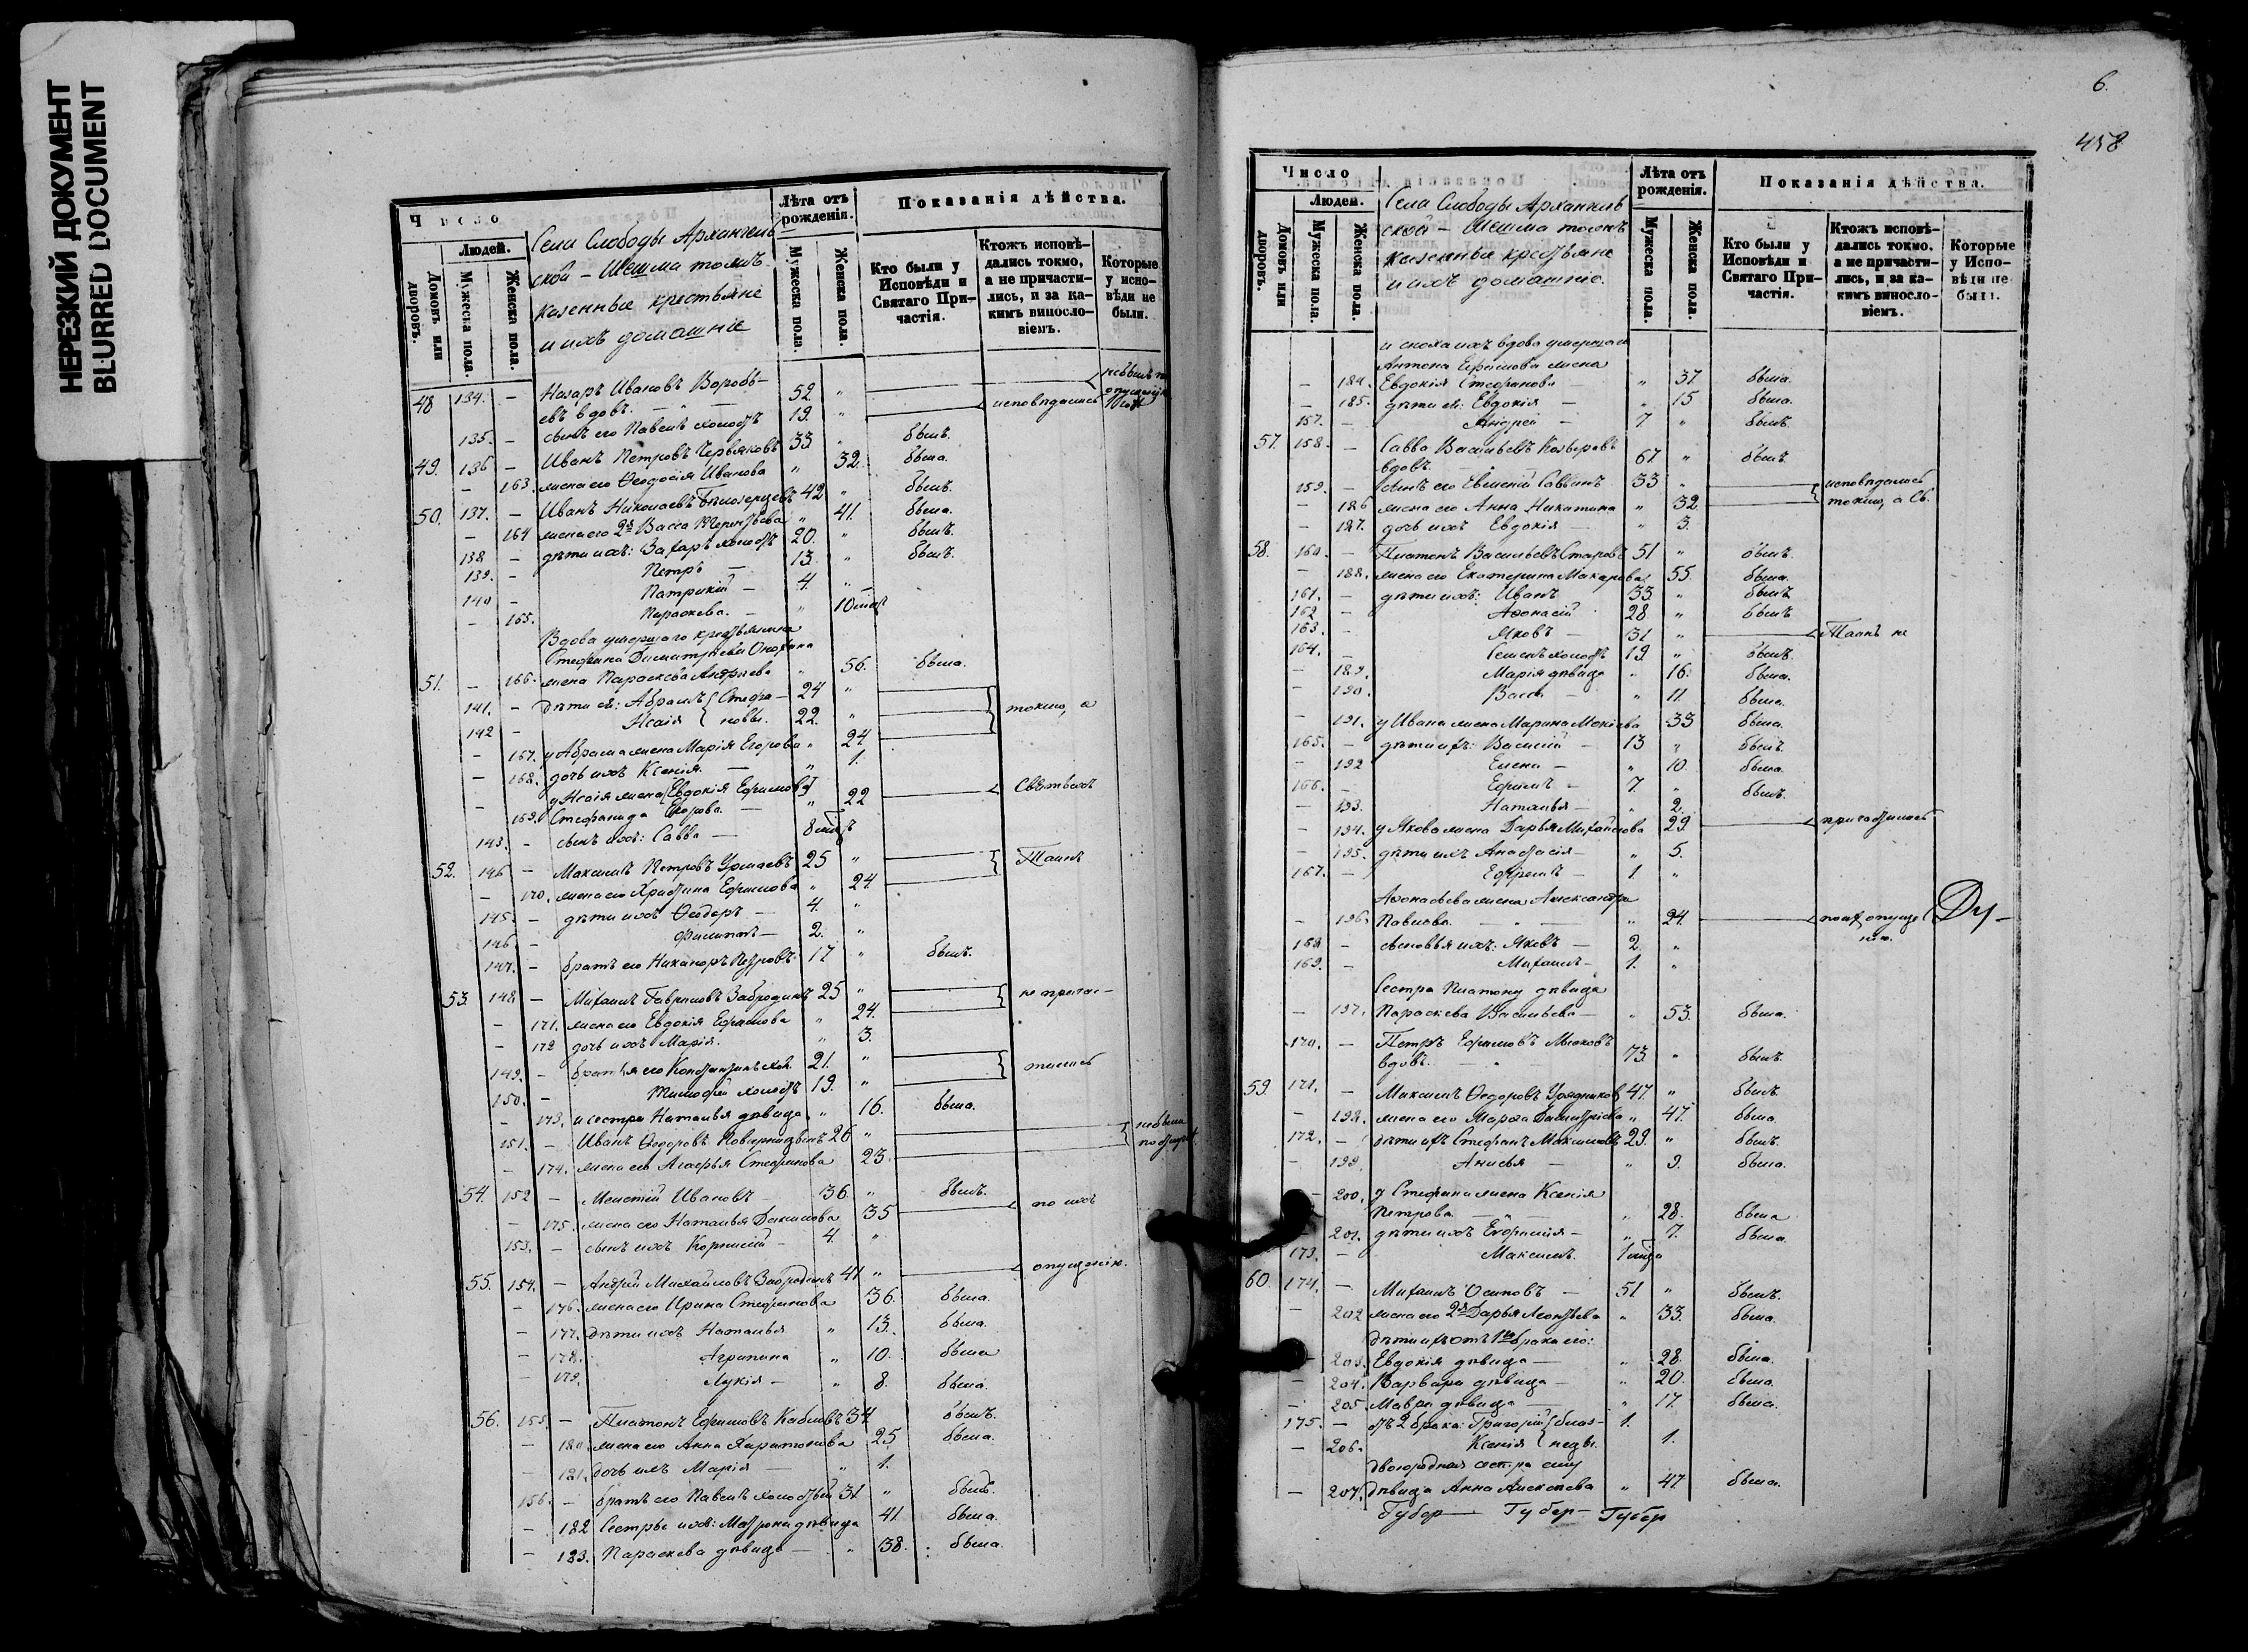 НЕРЕЗКИЙ ДОКУМЕНТ
BLURRED DOCUMENT
Число
Людей.
Домовъ или дворовъ.
Мужеска пола.
Женска пола.
Села Слободы Архангель
ской - Шешма тожъ
казенные крестьяне
и ихъ домашніе
Лѣта отъ рожденія.
Мужеска пола.
Женска пола.
Показанія дѣйства.
Кто были у Исповѣди и Святаго Причастія.
Ктожъ исповѣдались токмо, а не причастились, и за какимъ винословіемъ.
Которые у исповѣди не были.
48 134. - Назаръ Ивановъ Воробь-
евъ вдовъ. 52 "
135. - сынъ его Павелъ холостъ 19. " исповѣдались
49. 136 - Иванъ Петровъ Червяковъ 33 " былъ.
- 163. жена его Ѳеодосія Иванова " 32. была.
50. 137. - Иванъ Николаевъ Бѣлозерцевъ 42 " былъ.
- 164 жена его 2я Васса Терентьева " 41. была.
138 - дѣти ихъ: Захаръ холостъ 20. " былъ.
139. - Петръ - 13. " былъ.
140 - Патрикій - 4. "
- 165. Параскева. - "
Вдова умершаго крестьянина
Стефана Димитріева
51. - 166. жена Параскева Андреева " 56. была.
141. - дѣти ея: Абрамъ Стефа- 24 "
142 - Исаія новы. 22. " токмо, а
- 167. у Абрама жена Марія Егорова " 24
- 168. дочь ихъ Ксенія. " 1.
у Исаія жена Евдокія Ефимова
- 169. Стефанида Егорова. " 22 Святыхъ
143. - сынъ ихъ: Савва -
52. 146 - Максимъ Петровъ 25 " Таинъ
- 170. жена его Христина Ефимова " 24.
145. - дѣти ихъ Ѳеодоръ - 4. "
146 - Филиппъ - 2. "
147. - братъ его Никаноръ Петровъ 17 " былъ.
53. 148 - Михаилъ Гавриловъ Забродинъ 25 " не прича-
- 171. жена его Евдокія Ефимова " 24.
- 172 дочь ихъ Марія. " 3.
149. - братья его Константинъ хол. 21. " стились
150. - Тимофей холостъ 19. "
- 173. и сестра Наталья дѣвица " 16. была.
151. - Иванъ Ѳедоровъ 26 "
- 174. жена его Агафья Стефанова 23.
54. 152 - Мелетій Ивановъ - 36. " былъ.
- 175. жена его Наталья Данилова 35 по ихъ
153. - сынъ ихъ Корнилій - 4. "
55. 154. - Андрей Михайловъ Забродинъ 41 " опущенію.
- 176. жена его Ирина Стефанова 36. была.
- 177. дѣти ихъ Наталья " 13. была.
- 178. Агрипина " 10. была
- 179. Лукія - " 8. была.
56. 155. - Платонъ Ефимовъ 34 былъ.
- 180. жена его Анна Харитонова 25 была.
- 181. дочь ихъ Марія " 1.
156. - братъ его Павелъ холостый 31 " былъ.
- 182 Сестры ихъ: Матрона дѣвица 41 была.
- 183. Параскева дѣвица - " 38. была.
6.
458
Число
Людей.
Домовъ или дворовъ.
Мужеска пола.
Женска пола.
Села Слободы Архангель
ской - Шешма тожъ
казенные крестьяне
и ихъ домашніе.
Лѣта отъ рожденія.
Мужеска пола.
Женска пола.
Показанія дѣйства.
Кто были у Исповѣди и Святаго Причастія.
Ктожъ исповѣдались токмо, а не причастились, и за какимъ винословіемъ.
Которые у Исповѣди не были.
и сноха ихъ вдова умершаго
Антона Ефимова жена
- 184. Евдокія Стефанова - " 37. была.
- 185. дѣти ея: Евдокія - " 15 была.
157. - Андрей - 7 " былъ.
57. 158. - Савва Васильевъ
вдовъ. 67 " былъ.
159. - сынъ его Евгеній Саввинъ 33 " исповѣдались
- 186 жена его Анна Никитина " 32 токмо, а Св.
- 187. дочь ихъ Евдокія - " 3.
58. 160. - Платонъ Васильевъ Старовъ 51 " былъ.
- 188. жена его Екатерина Макарова 55. была.
161. - дѣти ихъ: Иванъ 33. " былъ
162 - Аѳонасій 28 " былъ
163. - Яковъ - 31 " Таинъ не
164. - Семенъ холостъ 19 " былъ.
- 189. Марія дѣвица " 16. была.
- 190. Васса - " 11 была.
- 191. у Ивана жена Марина Мокіева 33 была.
165. - дѣти ихъ: Василій - 13 " былъ.
- 192 Елена - " 10. была.
166. - Ефимъ - 7. " былъ.
- 193. Наталья - " 2.
- 194. у Якова жена Дарья Михайлова 29 причастились
- 195. дѣти ихъ Анастасія - " 5.
167. - Ефремъ - 1. "
Аѳонасьева жена Александра
- 196. Павлова. - " 24.
168 - сыновья ихъ: Яковъ - 2. "
169. - Михаилъ - 1. "
Сестра Платону дѣвица
- 197. Параскева Васильева - " 53. была.
170. - Петръ Ефимовъ
вдовъ. - " 73. " былъ.
59. 171. - Максимъ Ѳедоровъ Урядниковъ 47. " былъ.
- 198. жена его Марѳа Димитріева " 47. была
172. - дѣти ихъ Стефанъ Максимовъ 29. " былъ.
- 199. Анисья - " 9. была.
- 200. у Стефана жена Ксенія
Петрова. - " 28. была
- 201. дѣти ихъ Евфимія - " 7. была.
173. - Максимъ.
60. 174. - Михаилъ Осиповъ - 51 " былъ.
- 202 жена его 2я Дарья Леонтьева " 33. была.
дѣти ихъ отъ 1го брака его:
- 203. Евдокія дѣвица - " 28. была.
- 204. Варвара дѣвица - " 20. была.
- 205 Мавра дѣвица - " 17. была.
175. - отъ 2 брака: Григорій близ- 1.
- 206. Ксенія нецы. 1.
двоюродная сестра ему
- 207. дѣвица Анна Алексѣева " 47. была.
Губер- Губер- Губер